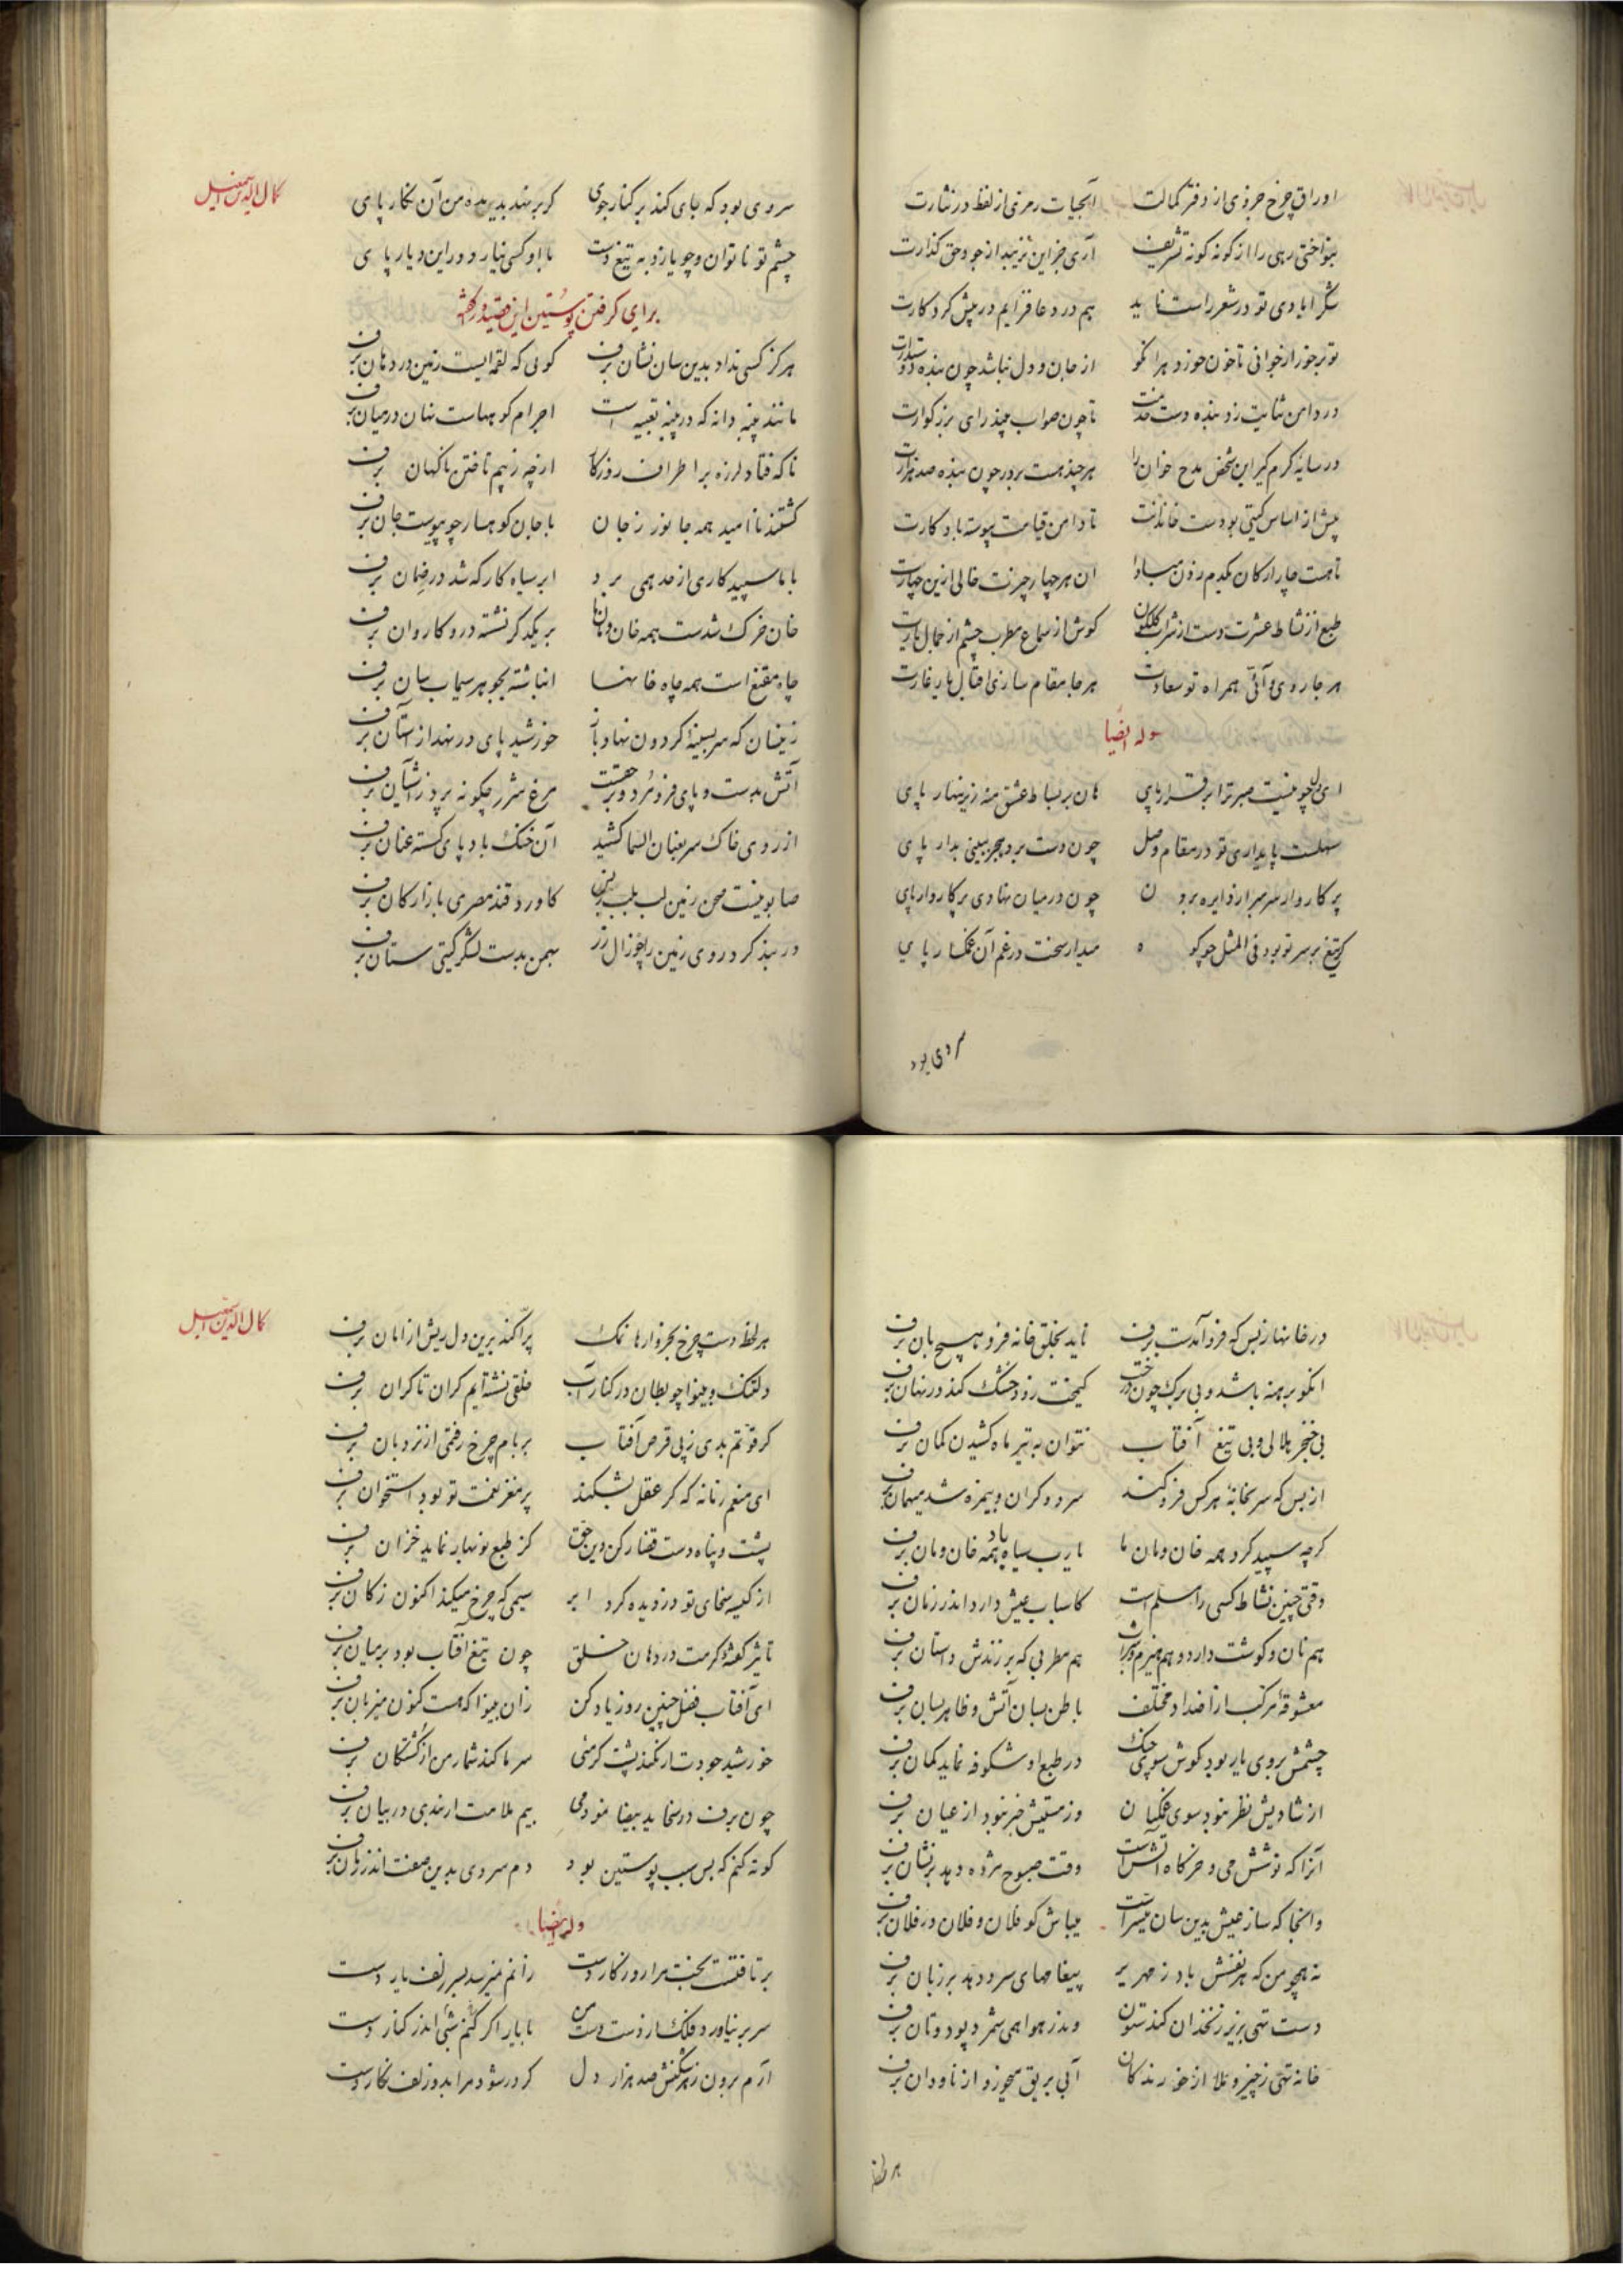 اوراق چرخ جزوی از دفتر کمالت آبحیات رمزی از لفظ در نثارت
بنواختی رهی را از کونه کونه تشریف آری جز این نزیبد از جود حق کذارت
شکر ایادی تو در شعر راست ناید هم در دعا فزایم در پیش کرد کارت
از جان و دل نباشد چون بنده دوستدارت
در دامن ثنایت زد بنده دست خدمت تا چون صواب بیند رای بزرکوارت
در سایهٔ کرم کیر این شخص مدح خوان را هر چند هست بر در چون بنده صد هزارت
پیش از اساس کیتی بودست خاندانت تا دامن قیامت پیوسته باد کارت
تا هست چار ارکان یکدم زدن مبادا ان هر چهار چیزت خالی ازین چهارت
طبع از نشاط عشرت دست از شراب کلکون کوش از سماع مطرب چشم از جمال یارت
هر جا روی و آئی همراه تو سعادت هر جا مقام سازی اقبال یار غارت
وله ایضا
ای دل چو نیست صبر ترا بر قرار پای هان بر بساط عشق منه زینهار پای
سهلست پایداری تو در مقام وصل چون دست برد هجر ببینی بدار پای
پرکار وار سر مبر از دایره برون چون در میان نهادی پرکار وار پای
کر تیغ بر سر تو بود فی المثل چو کوه میدار سخت در غم آن غمکسار پای
سروی بود
کمال الدین اسمعیل
سروی بود که جای کند بر کنار جوی کر بر نهد بدیدهٔ من آن نکار پای
چشم تو ناتوان و چو یازد به تیغ دست با او کسی نیارد در این دیار پای
برای کرفتن پوستین این قصیده گفته
هرکز کسی نداد بدین سان نشان برف کوئی که لقمه ایست زمین در دهان برف
مانند پنبه دانه که در پنبه تعبیه است اجرام کوههاست نهان در میان برف
ناکه فتاد لرزه بر اطراف روزکار از چه ز بیم تاختن ناکهان برف
کشتند ناامید همه جانور ز جان با جان کوهسار چو پیوست جان برف
با ما سپید کاری از حد همی برد ابر سیاه کار که شد در ضمان برف
بر یکدکر نشسته درو کاروان برف
چاه مقنع است همه چاه خانها انباشته بجوهر سیماب سان برف
زینسان که سر بسینهٔ کردون نهاد باز خورشید پای در نهد از آستان برف
آتش بدست و پای فرو مرد و برحقست مرغ شرر چکونه پرد ز آشیان برف
از روی خاک سر بعنان السما کشید آن خنک باد پای کسسته عنان برف
صابونیست صحن زمین لب بلب کاورد قند مصری بازارکان برف
در پنبه کرد روی زمین را چو زال زر بهمن بدست لشکر کیتی ستان برف
در خانها ز بس که فرو آمدست برف ناید بحلق خانه فرو هیچ بان برف
انکو برهنه باشد و بی برک چون درخت کیمخت زود خشک کند در نهان برف
بی خنجر هلالی و بی تیغ آفتاب نتوان به تیر ماه کشیدن کمان برف
از بس که سر بخانهٔ هر کس فرو کند سرد و کران و بیمزه شد میهمان برف
کرچه سپید کرد همه خان و مان ما یارب سیاه باد همه خان و مان برف
وقتی چنین نشاط کسی را مسلم است کاسباب عیش دارد اندر زمان برف
هم نان و کوشت دارد و هم هیزم و شراب هم مطربی که بر زندش داستان برف
معشوقهٔ مرکب از اضداد مختلف باطن بسان آتش و ظاهر بسان برف
چشمش بروی یار بود کوش سوی چنک در طبع او شکوفه نماید کمان برف
از شادیش نظر نبود سوی غمکیان وز مستیش خبر نبود از عیان برف
آنرا که نوشش می و خرکاه آتش است وقت صبوح مژده دهد بر نشان برف
وانجا که ساز عیش بدین سان میسر است میباش کو فلان و فلان در فلان برف
نه همچو من که هر نفسش باد زمهریر پیغامهای سرد دهد بر زبان برف
دست تهی بزیر زنخدان کند ستون وندر هوا همی شمرد پود و تان برف
خانه تهی ز چیز و ملا از خورندکان آبی بریق میخورد از ناودان برف
هر لحظه
کمال الدین اسمعیل
هر لحظه دست چرخ بخروارها نمک پراکند برین دل ریش از امان برف
دلتنک و بینوا چو بطان در کنار آب خلقی نشسته ایم کران تا کران برف
کر قوتم بدی ز پی قرص آفتاب بر بام چرخ رفتمی از نردبان برف
ای منعم زمانه که کر عقل بشکند پر مغز نعمت تو بود استخوان برف
پشت و پناه دست قضا رکن دین حق کز طبع نوبهار نماید خزان برف
از کیسه سخای تو دزدیده کرد ابر سیمی که چرخ میکند اکنون ز کان برف
تاثیر کفتهٔ کرمت در دهان خلق چون تیغ آفتاب بود بر میان برف
ای آفتاب فضل چنین روز یاد کن زان بینوا که هست کنون میزبان برف
خورشید جودت ار نکند پشت کرمئی سرما کند شمار من از کشتکان برف
چون برف بیم ملامت ار بندی در بیان برف
کوته کنم که بس سبب پوستین بود دم سردی بدین صفت اندر زبان برف
وله ایضا
بر تافتست بخت مرا روزکار دست زانم نمیرسد بسر زلف یار دست
سر بر نیاورد فلک ار دست دست من با یار اکر کنم شبی اندر کنار دست
آرم برون ز هر شکنش صد هزار دل کر در شود مرا بدو زلف نکار دست